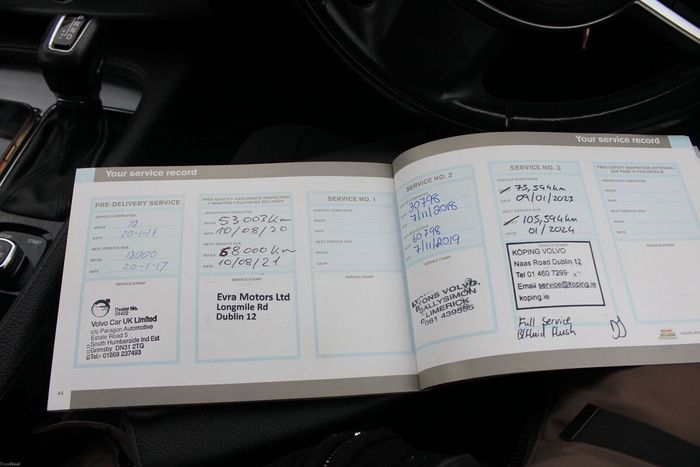 Your service record
PRE-DELIVERY SERVICE
SERVICE COMPLETED
MILES 10
DATE 20-1-16
NEXT SERVICE DUE
MILES 18000
DATE 20-1-17
SERVICE STAMP
Dealer No.
Volvo Car UK Limited
c/o Paragon Automotive
Estate Road 5
South Humberside Ind Est
Grimsby DN31 2TG
Tel:- 01869 237493
44
FREE QUALITY ASSURANCE INSPECTION
3 MONTHS FOLLOWING DELIVERY
INSPECTION COMPLETED
MILES 53003km
DATE 10/08/20
NEXT SERVICE DUE
MILES 68000km
DATE 10/08/21
SERVICE STAMP
Evra Motors Ltd
Longmile Rd
Dublin 12
SERVICE NO. 1
SERVICE COMPLETED
MILES
DATE
NEXT SERVICE DUE
MILES
DATE
SERVICE STAMP
Your service record
SERVICE NO. 2
SERVICE COMPLETED
MILES 30798
DATE 7/11/2018
NEXT SERVICE DUE
MILES 60798
DATE 7/11/2019
SERVICE STAMP
ONS VOLVO,
BALLYSIMON
LIMERICK
061 439555
SERVICE NO. 3
SERVICE COMPLETED
75,594km
DATE 09/01/2023
NEXT SERVICE DUE
105,594km
DATE 01/2024
SERVICE STAMP
KÖPING VOLVO
Naas Road Dublin 12
Tel 01 460 7299
Email service@koping.ie
koping.ie
Full Service
B/fluid flush
FREE SAFETY INSPECTION (OPTIONAL)
SEE PAGE 41 FOR DETAILS
INSPECTION COMPLETED
MILES
DATE
NEXT SERVICE DUE
MILES
DATE
SERVICE STAMP